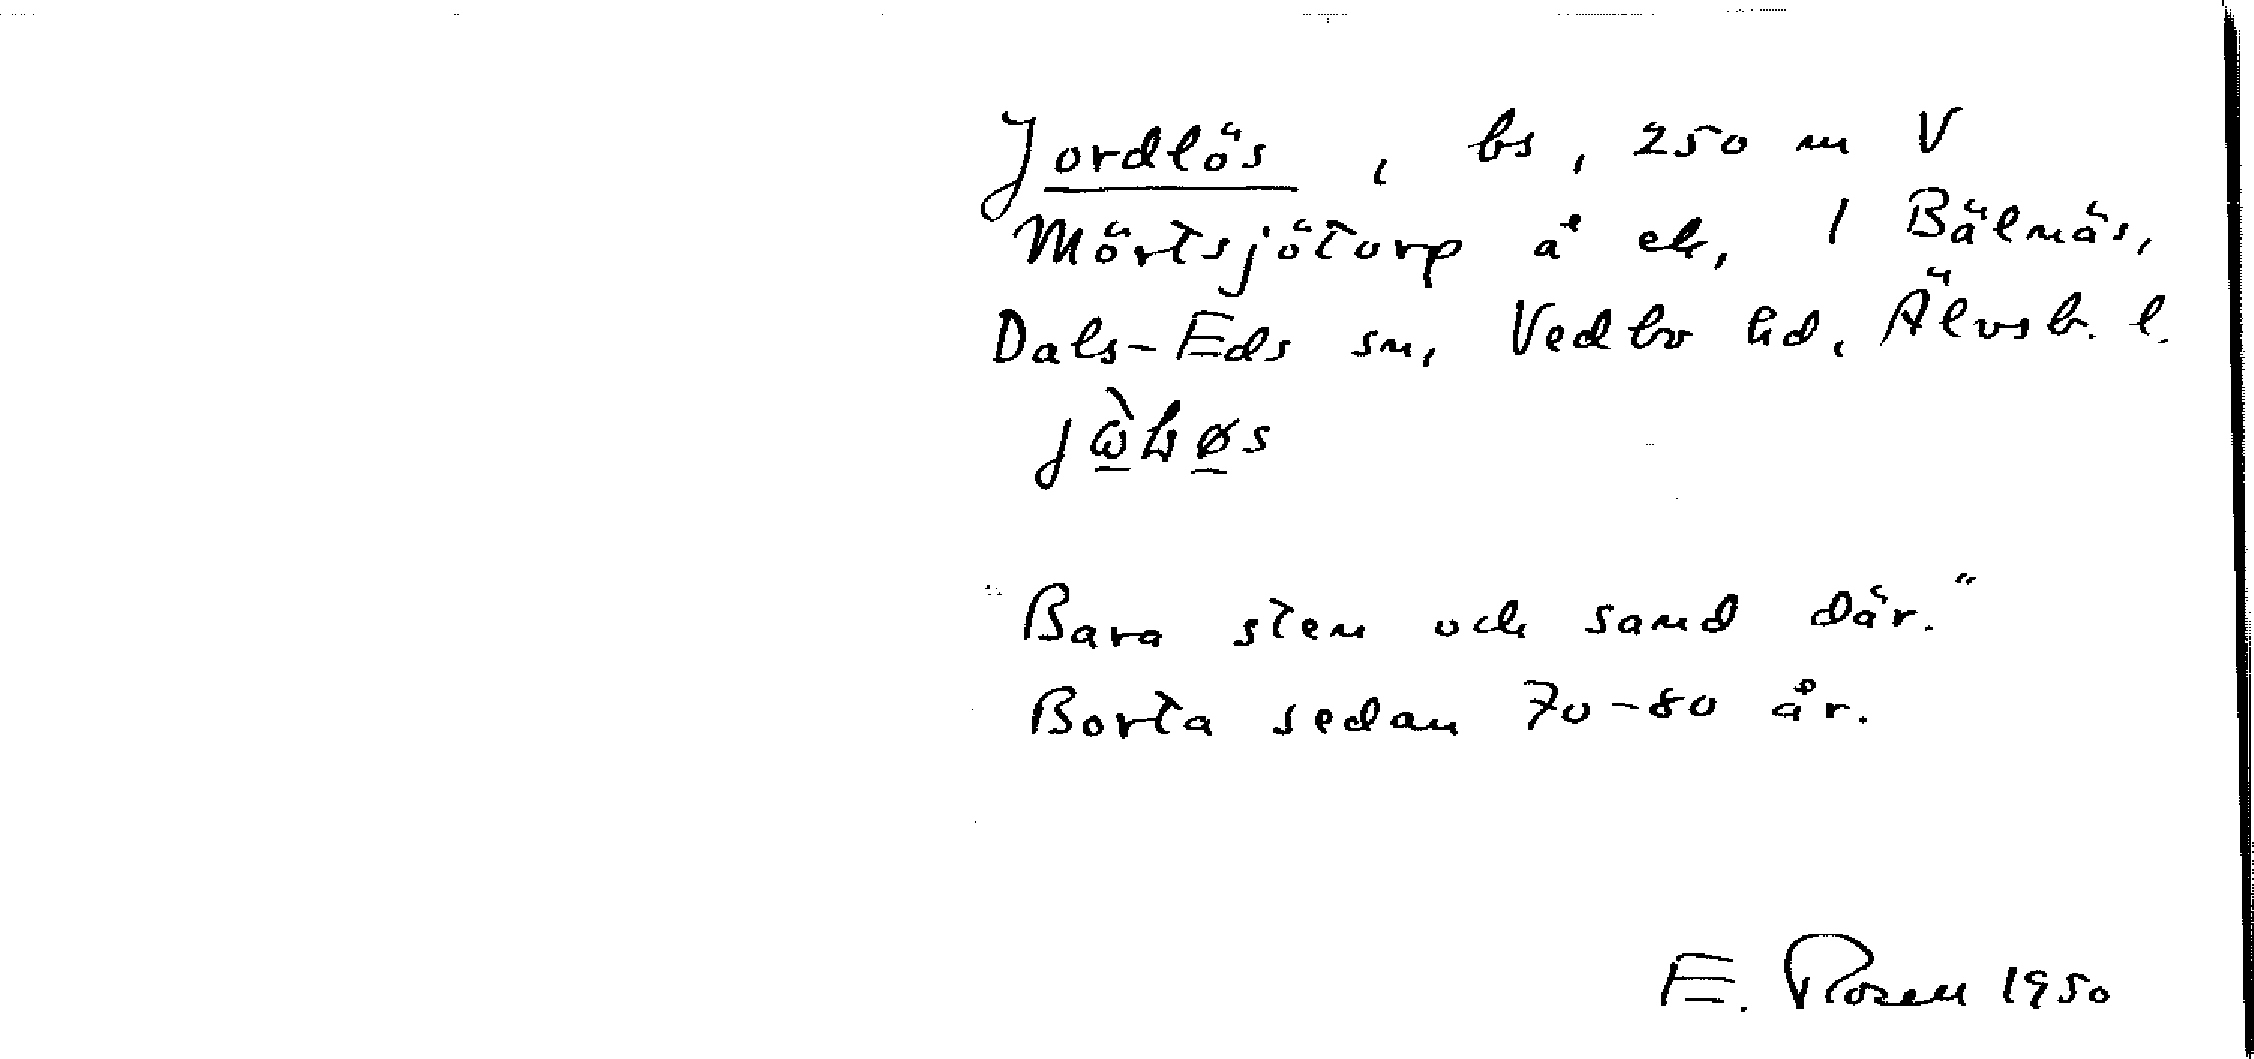 Jordlös, bs, 250 m V
Mörtsjötorp å ek, 1 Bälnäs,
Dals-Eds sn, Vedbo hd, Älvsb. l.
"Bara sten och sand där."
Borta sedan 70-80 år.
E. Rosen 1950